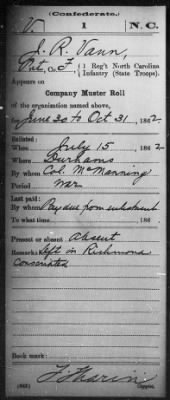 (Confederate.)
V. 1 N.C.
J. R. Vann,
Pvt, Co. F, 1 Reg't North Carolina
Infantry (State Troops).
Appears on
Company Muster Roll
of the organization named above,
for June 30 to Oct 31, 1862.
Enlisted:
When July 15, 1862.
Where Durhams
By whom Col. McManning
Period War
Last paid:
By whom Pay due from enlistment
To what time 186 .
Present or absent Absent
Remarks: left in Richmond
Conscripted
Book mark:
(642) Copyist.